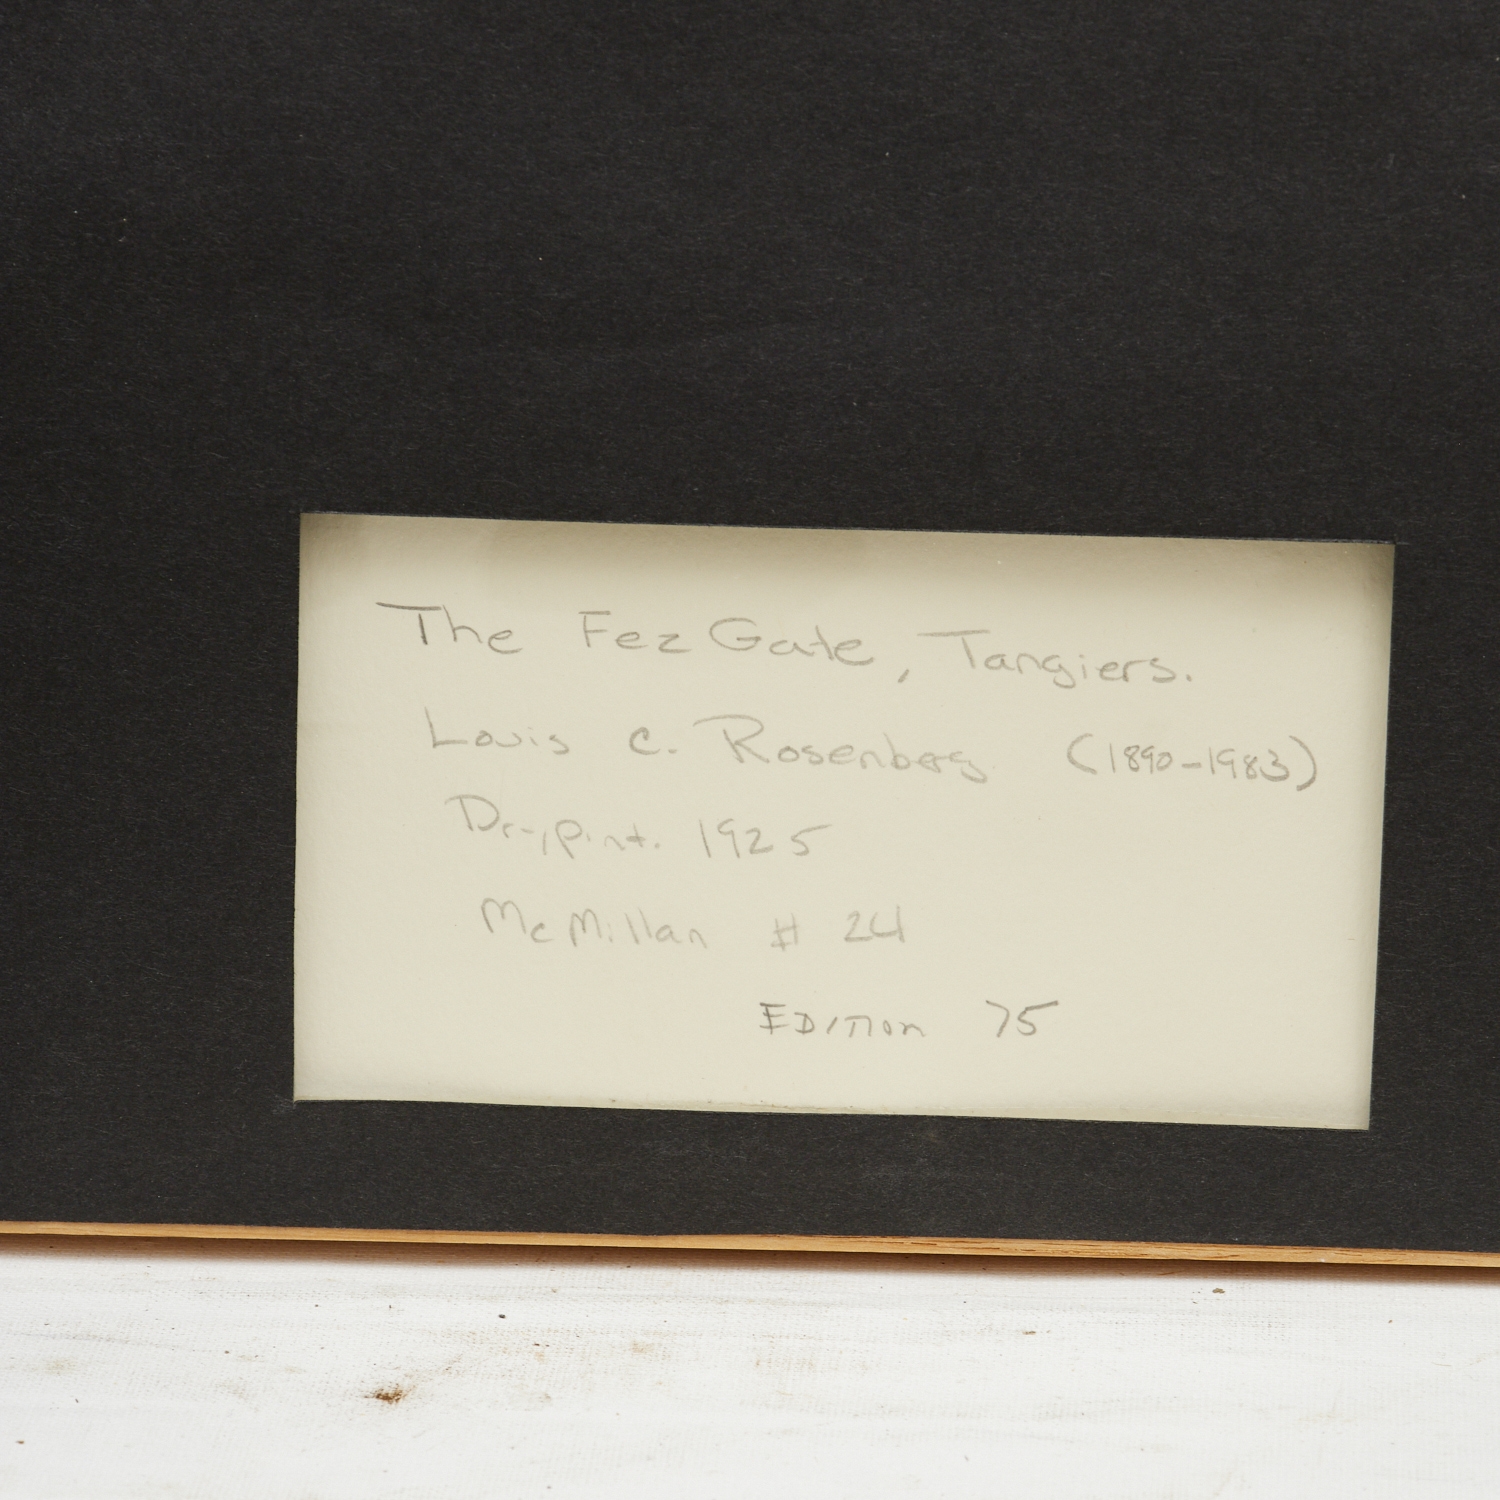 The Fez Gate, Tangiers.
Louis C. Rosenberg (1890-1983)
Drypint. 1925
McMillan # 24
EDITION 75